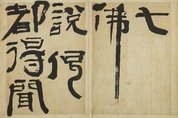 七
佛
說何
都得聞